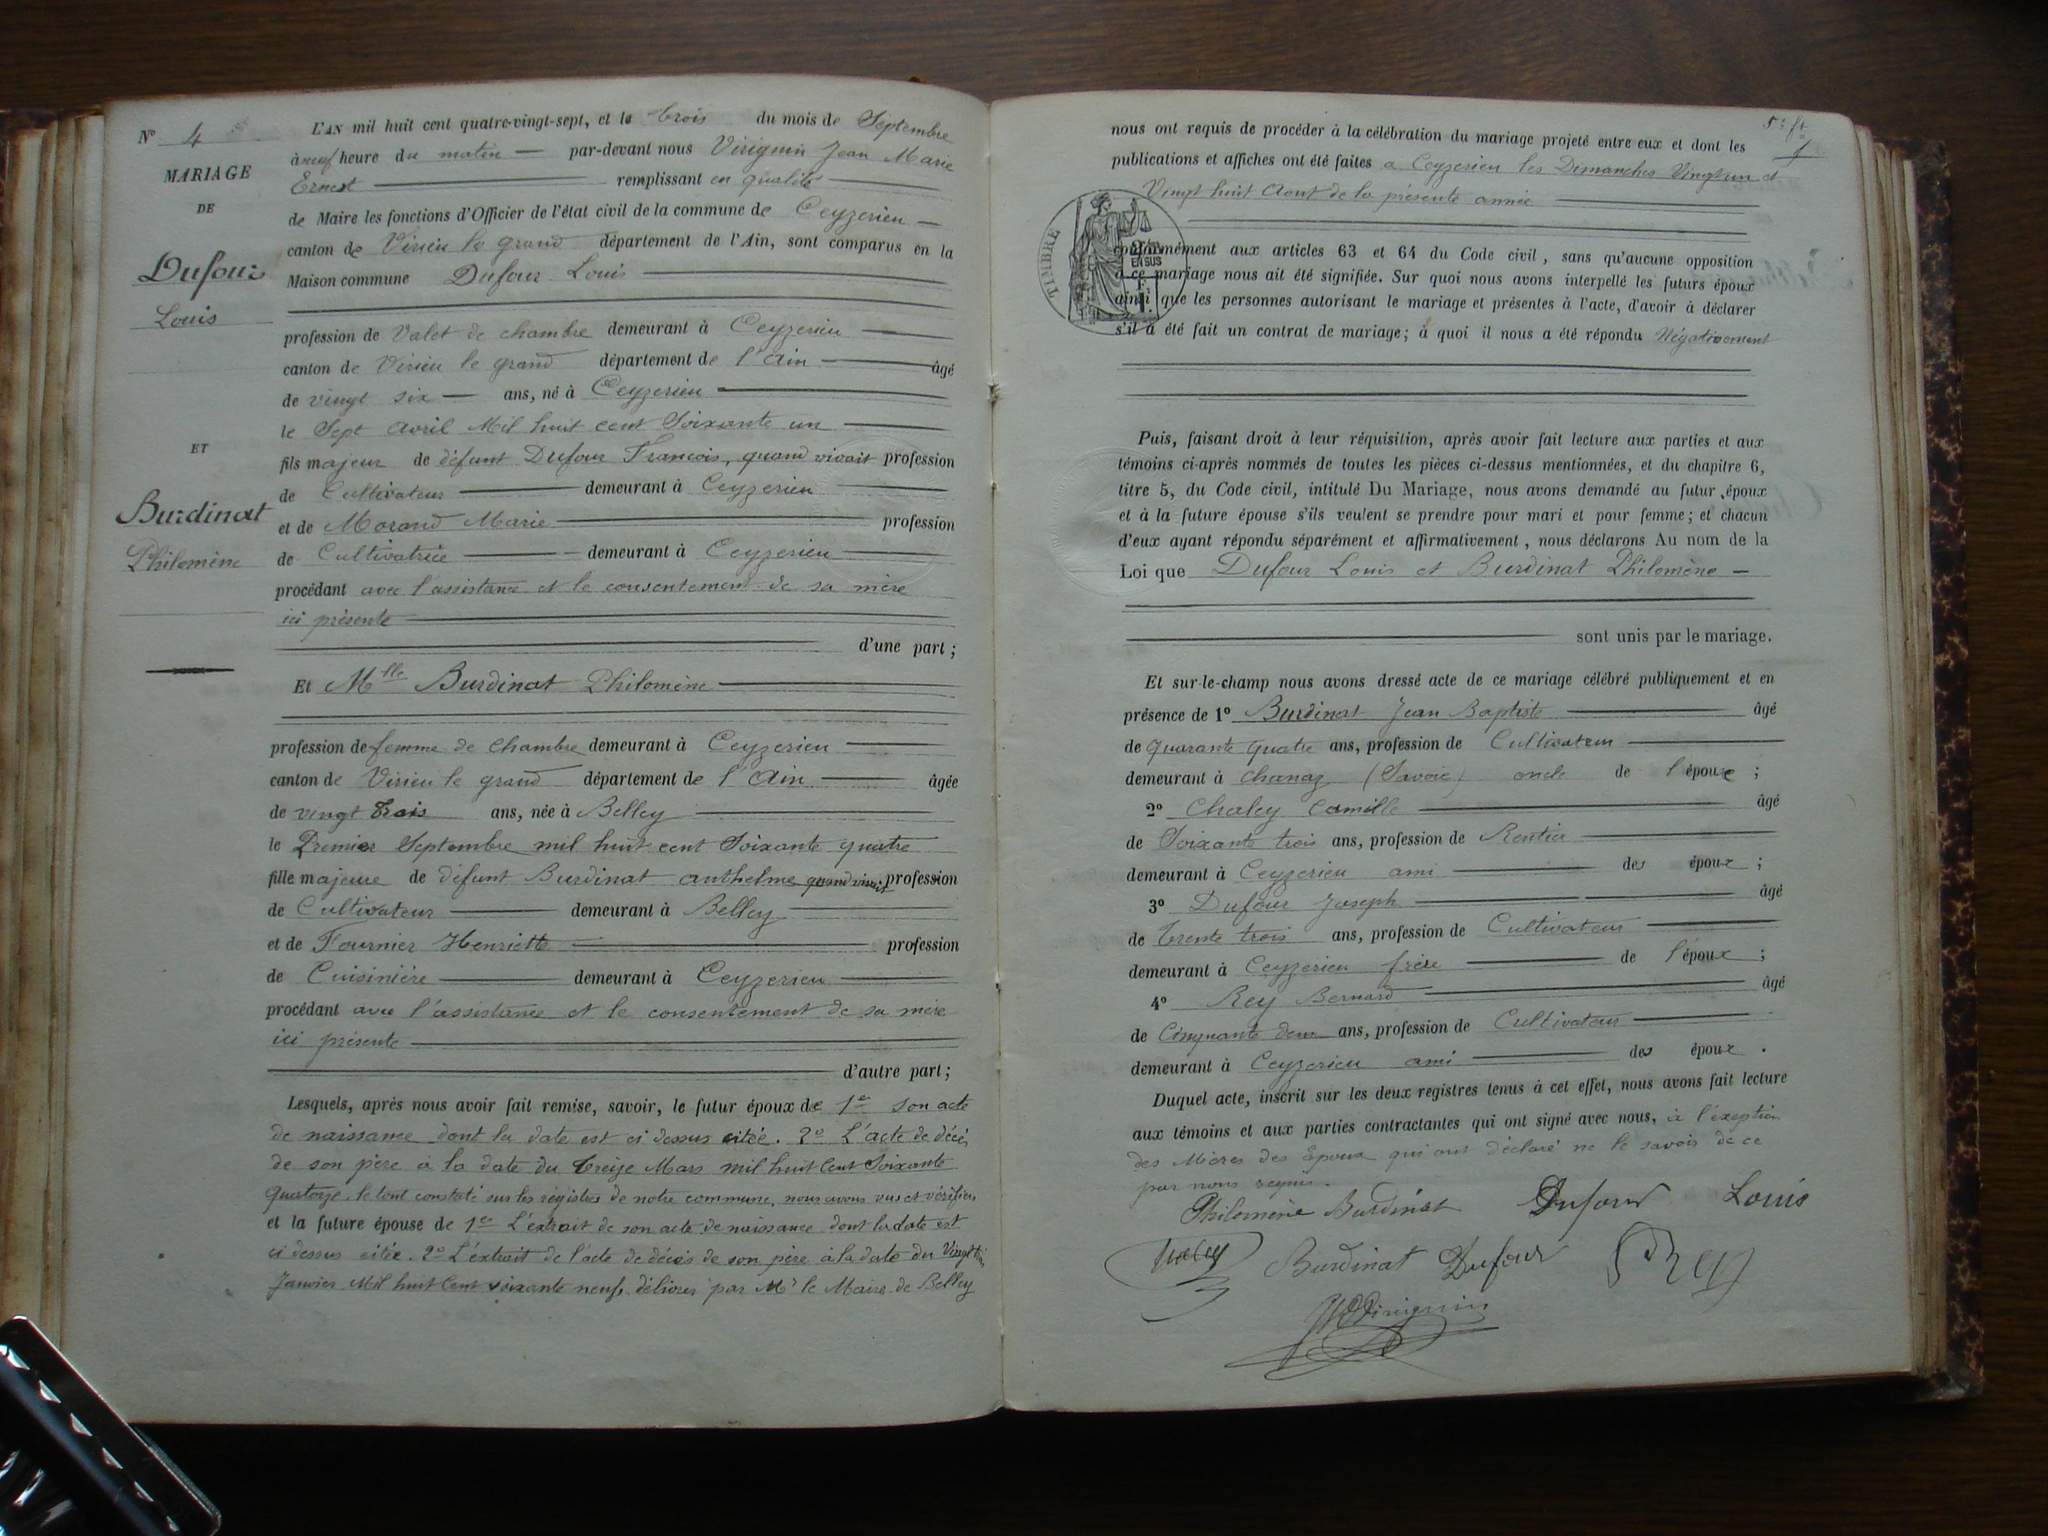 N° 4
MARIAGE
DE
Dufour
Louis
ET
Burdinat
Philomène
L'AN mil huit cent quatre-vingt-sept, et le trois du mois de Septembre
à neuf heure du matin par-devant nous Virignin Jean Marie
Ernest remplissant en qualité
de Maire les fonctions d'Officier de l'état civil de la commune de Ceyzerieu
canton de Virieu le grand département de l'Ain, sont comparus en la
Maison commune Dufour Louis
profession de Valet de chambre demeurant à Ceyzerieu
canton de Virieu le grand département de l'Ain âgé
de vingt six ans, né à Ceyzerieu
le Sept avril Mil huit cent Soixante un
fils majeur de défunt Dufour Francois, quand vivait profession
de Cultivateur demeurant à Ceyzerieu
et de Morand Marie profession
de Cultivatrice demeurant à Ceyzerieu
procédant avec l'assistance et le consentement de sa mère
ici présente
d'une part ;
Et Mlle Burdinat Philomène
profession de femme de chambre demeurant à Ceyzerieu
canton de Virieu le grand département de l'Ain âgée
de vingt trois ans, née à Belley
le Premier Septembre mil huit cent Soixante quatre
fille majeure de défunt Burdinat anthelme quand vivait profession
de Cultivateur demeurant à Belley
et de Fournier Henriette profession
de Cuisinière demeurant à Ceyzerieu
procédant avec l'assistance et le consentement de sa mère
ici présente
d'autre part ;
Lesquels, après nous avoir fait remise, savoir, le futur époux de 1er son acte
de naissance dont la date est ci dessus citée. 2° L'acte de décès
de son père à la date du treize Mars mil huit Cent Soixante
Quatorze. le tout constaté sur les registres de notre commune, nous avons vus et vérifiés
et la future épouse de 1er L'extrait de son acte de naissance dont la date est
ci dessus citée. 2° L'extrait de l'acte de décès de son père à la date du Vingt
Janvier Mil huit Cent soixante neuf, délivrés par Mr le Maire de Belley
nous ont requis de procéder à la célébration du mariage projeté entre eux et dont les
publications et affiches ont été faites a Ceyzerieu les Dimanches Vingt un et
Vingt huit Aout de la présente année
TIMBRE
conformément aux articles 63 et 64 du Code civil, sans qu'aucune opposition
à ce mariage nous ait été signifiée. Sur quoi nous avons interpellé les futurs époux
ainsi que les personnes autorisant le mariage et présentes à l'acte, d'avoir à déclarer
s'il a été fait un contrat de mariage ; à quoi il nous a été répondu Négativement
Puis, faisant droit à leur réquisition, après avoir fait lecture aux parties et aux
témoins ci-après nommés de toutes les pièces ci-dessus mentionnées, et du chapitre 6,
titre 5, du Code civil, intitulé Du Mariage, nous avons demandé au futur époux
et à la future épouse s'ils veulent se prendre pour mari et pour femme ; et chacun
d'eux ayant répondu séparément et affirmativement, nous déclarons Au nom de la
Loi que Dufour Louis et Burdinat Philomène
sont unis par le mariage.
Et sur-le-champ nous avons dressé acte de ce mariage célébré publiquement et en
présence de 1° Burdinat Jean Baptiste âgé
de quarante quatre ans, profession de Cultivateur
demeurant à Chanaz (Savoie) oncle de l'épouse ;
2° Chaley Camille âgé
de Soixante trois ans, profession de Rentier
demeurant à Ceyzerieu ami des époux ;
3° Dufour Joseph âgé
de trente trois ans, profession de Cultivateur
demeurant à Ceyzerieu frère de l'époux ;
4° Rey Bernard âgé
de Cinquante deux ans, profession de Cultivateur
demeurant à Ceyzerieu ami des époux.
Duquel acte, inscrit sur les deux registres tenus à cet effet, nous avons fait lecture
aux témoins et aux parties contractantes qui ont signé avec nous, à l'exeption
des Mères des Epoux qui ont déclaré ne le savoir de ce
par nous requis.
Philomène Burdinat Dufour Louis
Burdinat Dufour Rey
Virignin